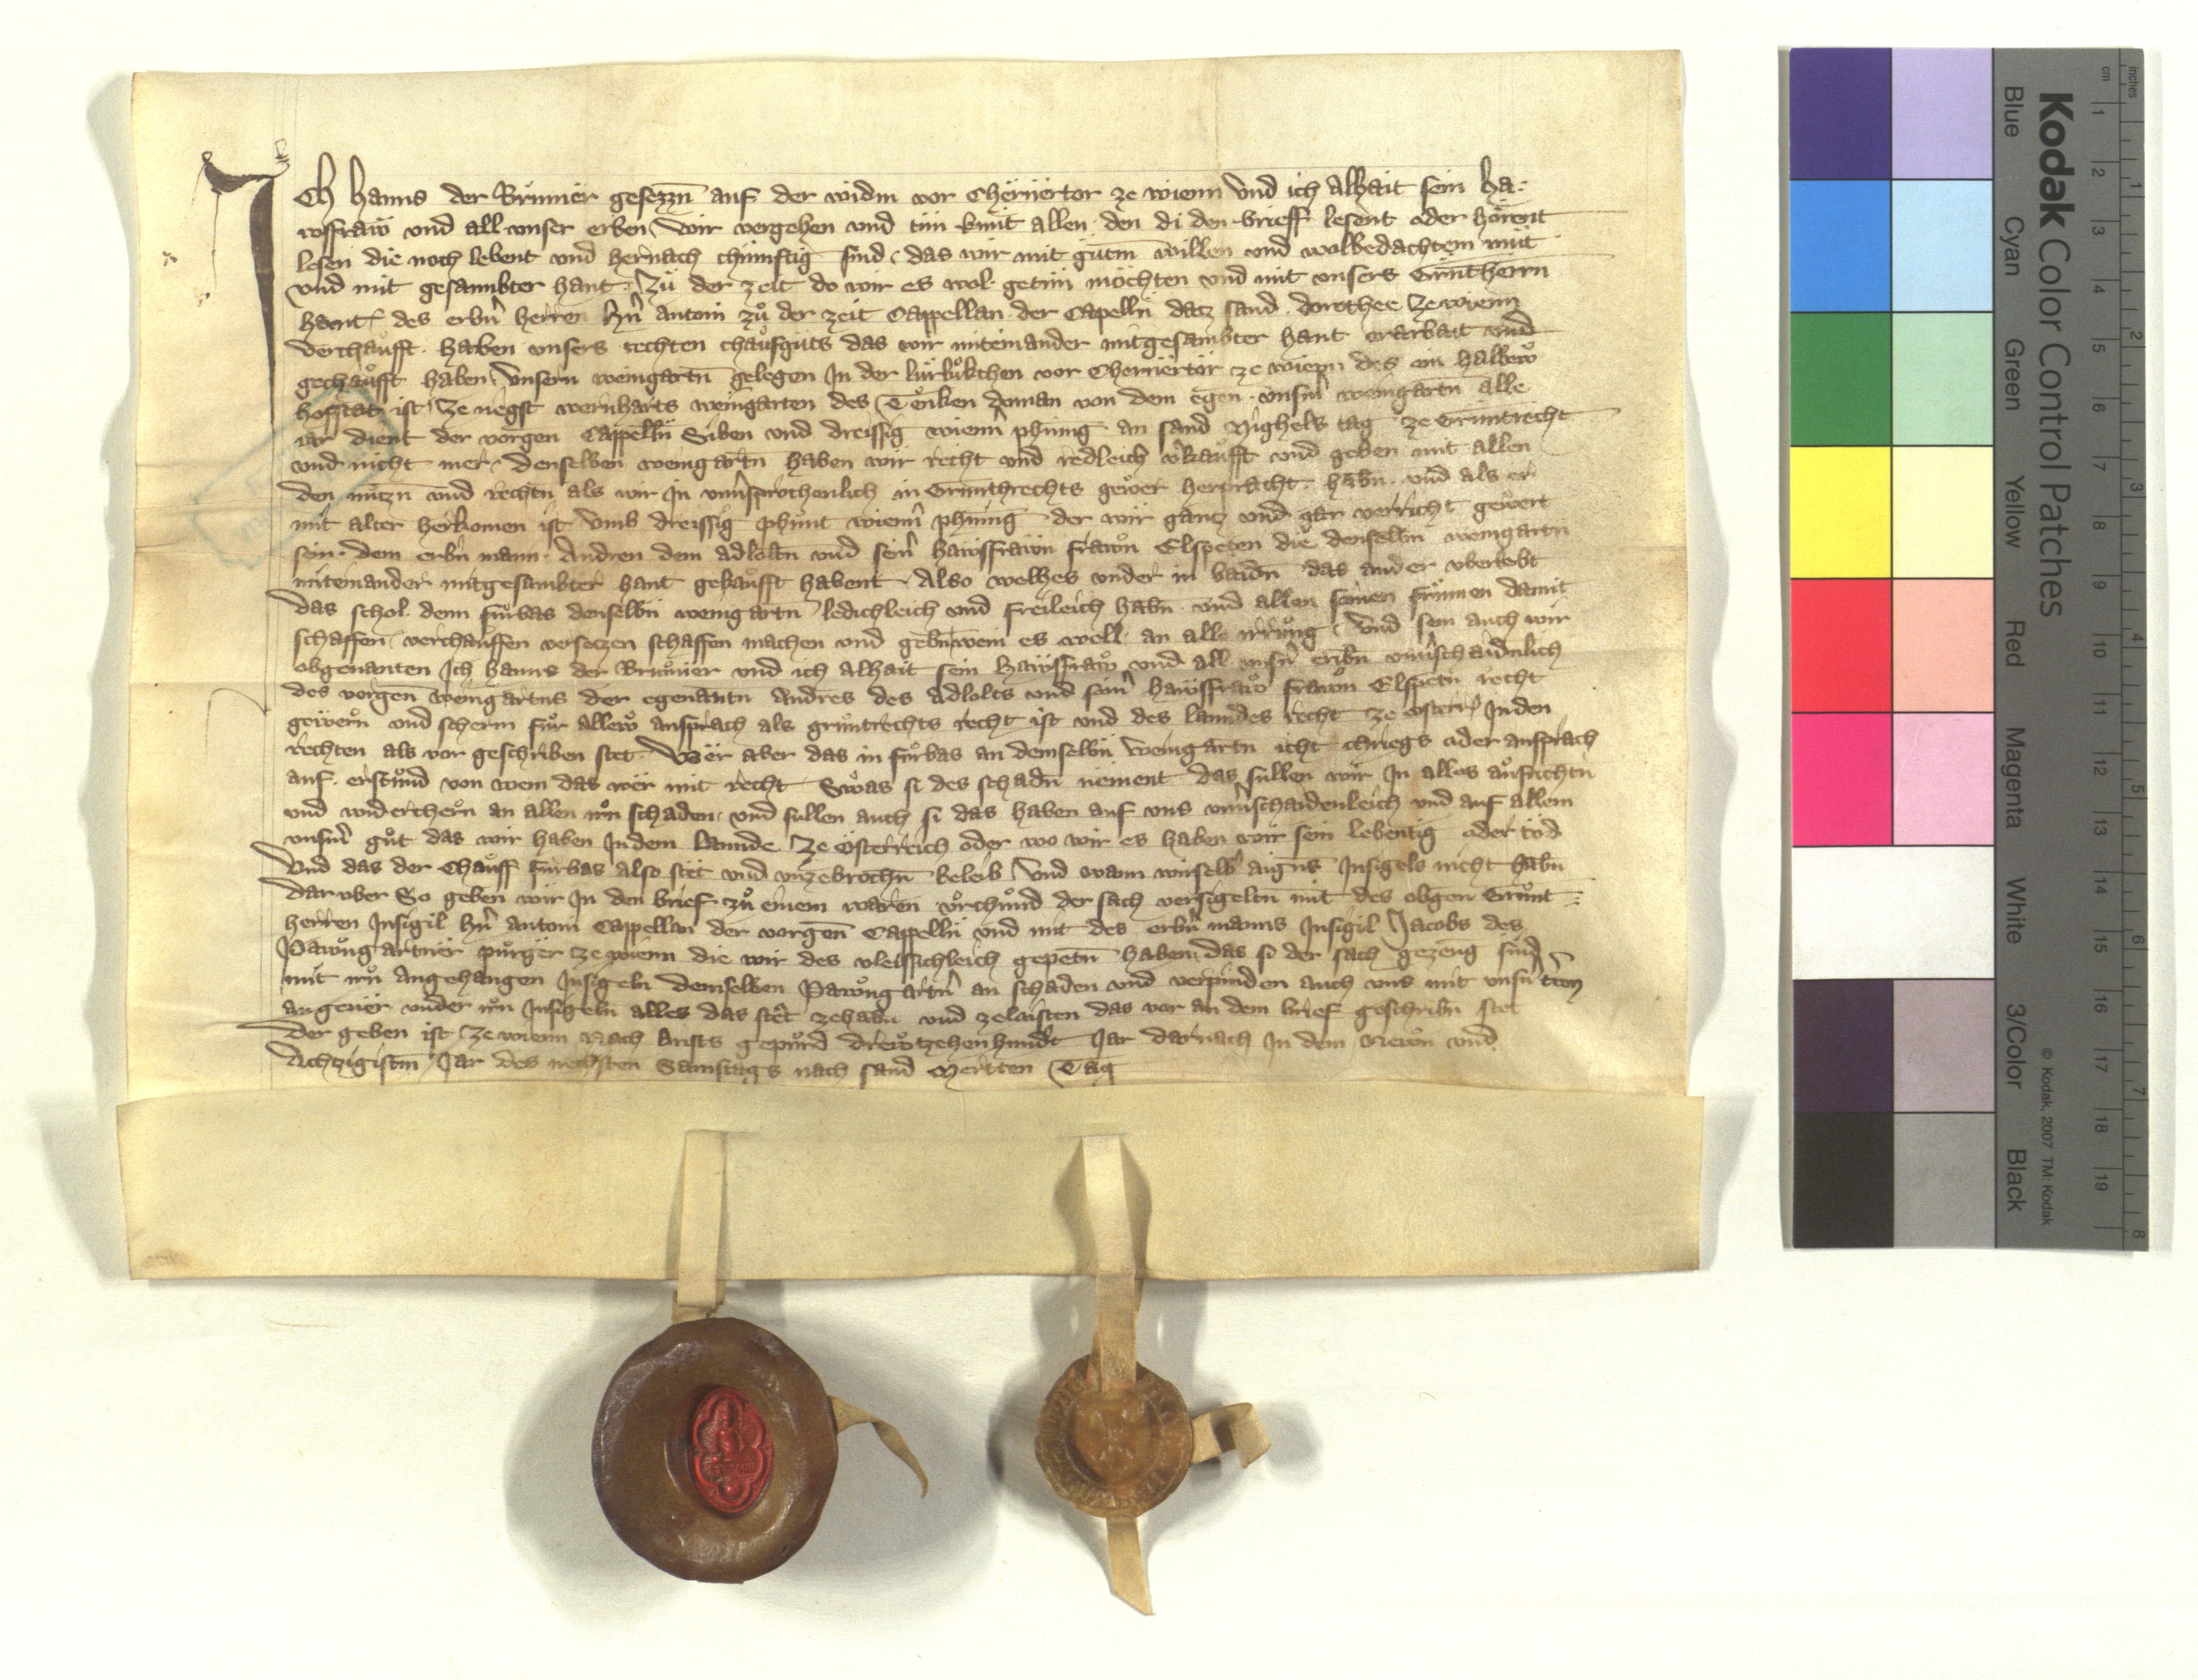 Ich Hanns der Brunner gesezzn̄ auf der widm vor Chërnertor ze wienn Vnd ich Alhait sein Ha-
wsfraw vnd all vnser erben, Wir vergehen vnd tün kunt allen den di den brieff lesent oder hörent
lesen die noch lebent vnd hernach chünftig sind, das wir mit gütm willen vnd wolbedachtem müt
vnd mit gesambter hant Zü der zeit do wir es wol getün möchten vnd mit vnsers Grüntherrn
hant des erbn̄ herren hn̄ Antoni zů der zeit Cappellan der Capelln datz sand dorothee ze wienn
verchaůfft haben vnsers rechten chaůfgüts das wir miteinander mitgesambter hant erarbait vnd
gechaůfft haben, Vnsern weingartn̄ gelegen In der vor Chernërtor ze wienn des ein halbew
hofstat ist ze nëgst wernharts weingarten des von dem egen vnsm̄ weingartn alle
iar dient der vorgen Cappelln Siben vnd dreissig wienn̄ phennig an sand Michels tag ze Gruntrecht
vnd nicht mer, denselben weingartn̄ haben wir recht vnd redleich v̄kaufft vnd geben mit allen
den nützn vnd rechtn als wir In vnūsprochenlich in Grunthrechts gewer herpracht habn vnd als er
mit alter herkomen ist vmb dreissig phunt wienn̄ phenn̄ig der wir gantz vnd gar verricht gewert
sein dem erbn̄ mann Andren dem Adloltn vnd sein̄ hawsfrawn frawn Elspeten die denselbn weingartn
miteinander mitgesambter hant gekaůfft habent Also welhes vnder in baidn das ander vberlebt
das schol denn fůrbas denselbn weingartn ledichleich vnd freileich habn vnd allen seinen frůmen damit
schaffen verchauffen versetzen schaffen machen vnd gebn wem es well an alle irrůng, Vnd sein auch wir
obgenanten Ich Hanns der Brunner vnd ich Alhait sein Hawsfraw vnd all vnsr̄ eribn vnūschaidnlich
des vorgen weingartns der egenantn Andres des Adlolts vnd sein̄ hawsfraw frawn Elspetn recht
gewern vnd scherm fůr allew ansprach als grůntrechts recht ist vnd des lanndes recht ze Osterr̄ In den
rechten als vor geschriben stet Wër aber das in fůrbas an demselbn weingartn icht chriegs oder ansprach
auf erstůnd von wem das wër mit recht Swas si des schadn̄ nëment das sullen wir In alles aůfrichtn
vnd widerchern an allen irn schaden, vnd sullen auch si das haben auf vns vnūschaidenleich vnd auf allem
vnsm̄ gůt das wir haben In dem lannde ze Österreich oder wo wir es haben wir sein lebentig oder tod
Vnd das der chauff fůrbas also stët vnd vnzebrochn̄ beleib Vnd wann wir selb aigns Insigels nicht habn
dar vber So geben wir In den brief zů einem waren vrchůnd der sach versigeltn mit des obgen Grůnt-
herren Insigil hn̄ Antoni Cappellan der vorgen̄ Cappelln vnd mit des erbn̄ manns Insigil Jacobs des
Pawngartner pürger ze wienn die wir des vleissichleich gepetn̄ haben, das si der sach gezeug sind
mit irn angehangen Insigeln demselben Pawngartn̄ an schaden vnd verpinden auch vns mit vnsn̄ trewn
angeuër vnder irn Insigeln alles das stët ze habn vnd ze laisten das vor an dem brief geschribn̄ stet
der geben ist ze wienn Nach krists gepůrd drewtzehenhundt̄ Jar darnach In dem Newn vnd
Achzigistm Jar des nechsten Samstags nach sand Mertten Tag
Kodak Color Control Patches
Blue Cyan Green Yellow Red Magenta White 3/Color Black
© Kodak, 2007 TM: Kodak
cm 1 2 3 4 5 6 7 8 9 10 11 12 13 14 15 16 17 18 19
inches 1 2 3 4 5 6 7 8